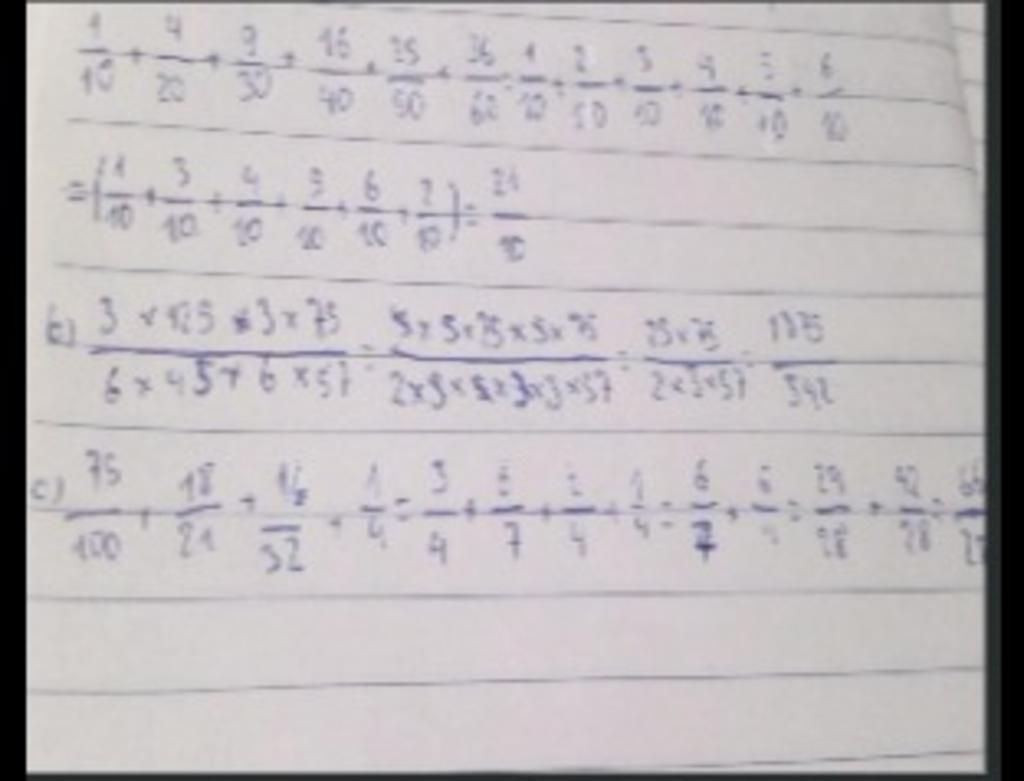 1/10 + 4/20 + 9/30 + 16/40 + 25/50 + 36/60 = 1/10 + 2/10 + 3/10 + 4/10 + 5/10 + 6/10
= (1/10 + 3/10 + 4/10 + 5/10 + 6/10 + 2/10) = 21/10
b) 3 × 125 × 3 × 75 / 6 × 45 × 6 × 57 = 5 × 5 × 25 × 5 × 75 / 2 × 3 × 5 × 3 × 3 × 57 = 25 × 75 / 2 × 3 × 57 = 1875 / 342
c) 75/100 + 18/21 + 16/32 + 1/4 = 3/4 + 6/7 + 2/4 + 1/4 = 6/7 + 6/4 = 24/28 + 42/28 = 66